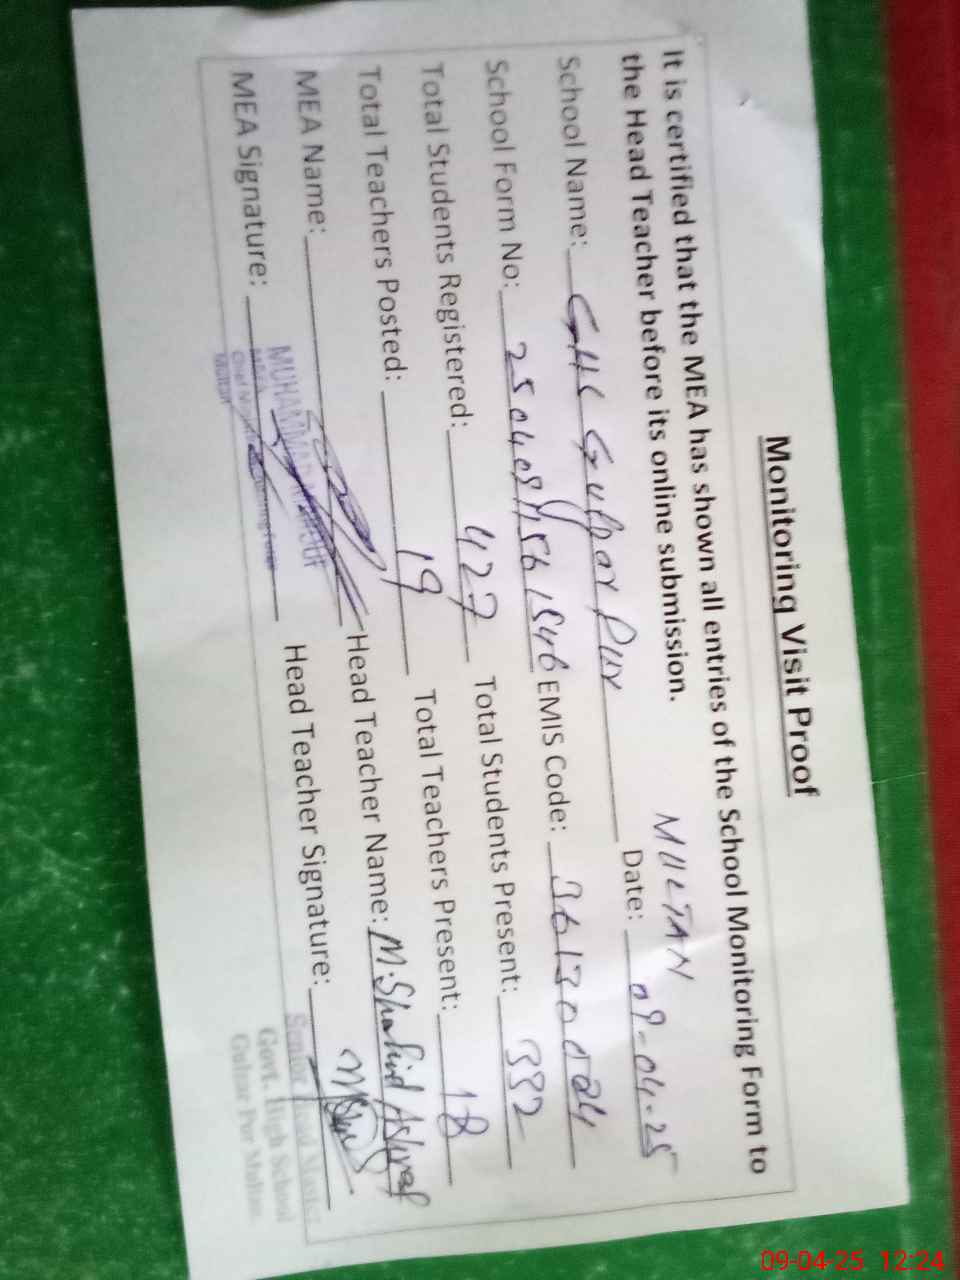 Monitoring Visit Proof
It is certified that the MEA has shown all entries of the School Monitoring Form to
the Head Teacher before its online submission.
MULTAN
School Name: GHS Gulzar Pur Date: 09-04-25
School Form No: EMIS Code:
Total Students Registered: 427 Total Students Present: 332
Total Teachers Posted: 19 Total Teachers Present: 18
MEA Name: Head Teacher Name: M.Shahid Ashraf
MEA Signature: Head Teacher Signature:
MUHAMMAD
Senior Head Master
Govt. High School
Gulzar Pur Multan
09-04-25 12:24